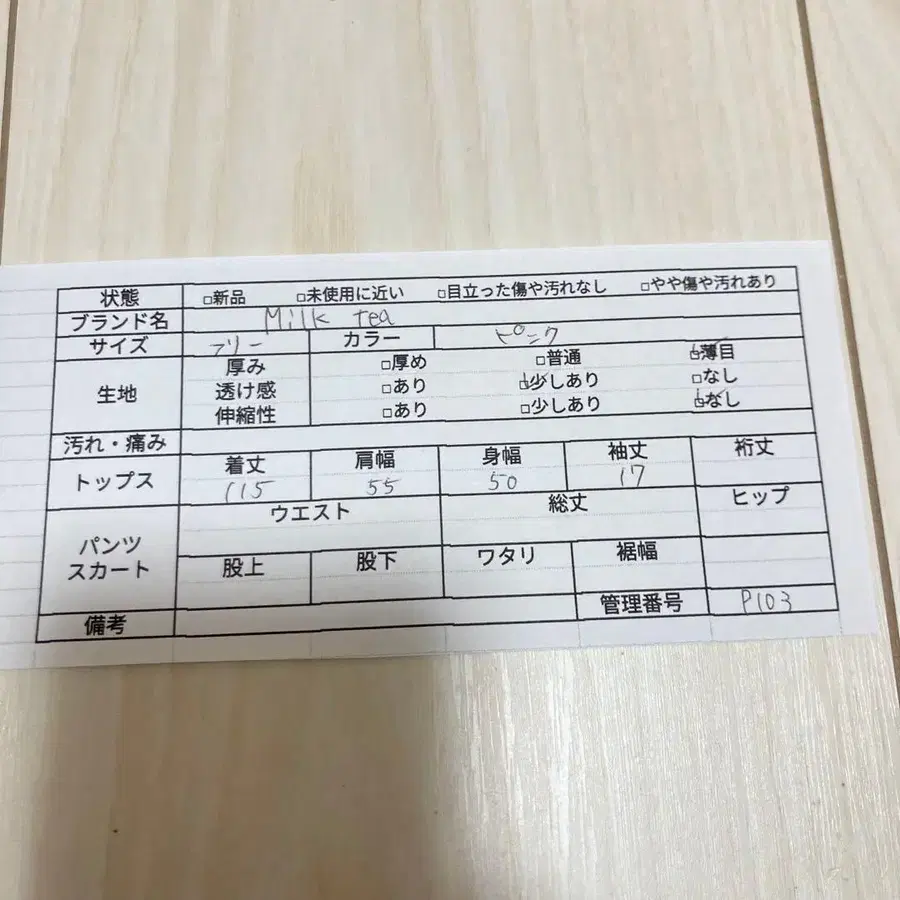 状態 □新品 □未使用に近い □目立った傷や汚れなし □やや傷や汚れあり
ブランド名 Milk tea
サイズ フリー カラー ピンク
生地 厚み □厚め □普通 ☑薄目
透け感 □あり ☑少しあり □なし
伸縮性 □あり □少しあり ☑なし
汚れ・痛み
トップス 着丈 肩幅 身幅 袖丈 裄丈
115 55 50 17
パンツ スカート ウエスト 総丈 ヒップ
股上 股下 ワタリ 裾幅
備考 管理番号 P103